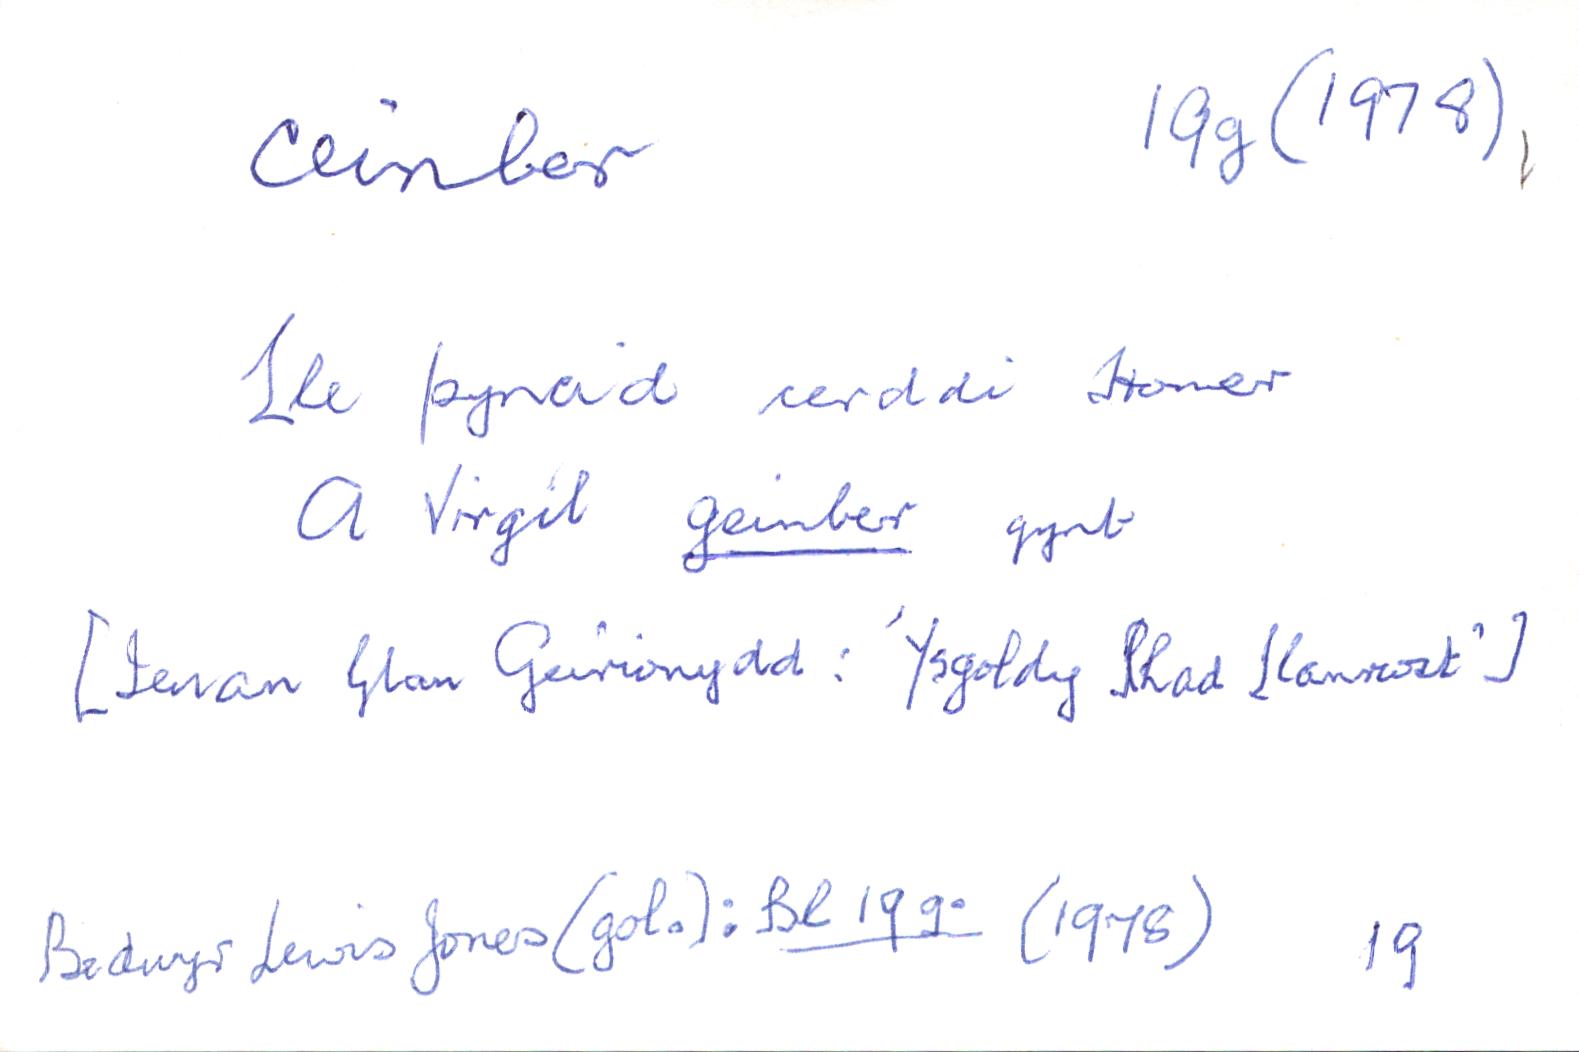 ceinber 19g (1978),
Lle pyncid cerddi Homer
A Virgil geinber gynt
[Ieuan Glan Geirionydd : 'Ysgoldy Rhad Llanrwst']
Bedwyr Lewis Jones (gol.): Bl 19g. (1978) 19